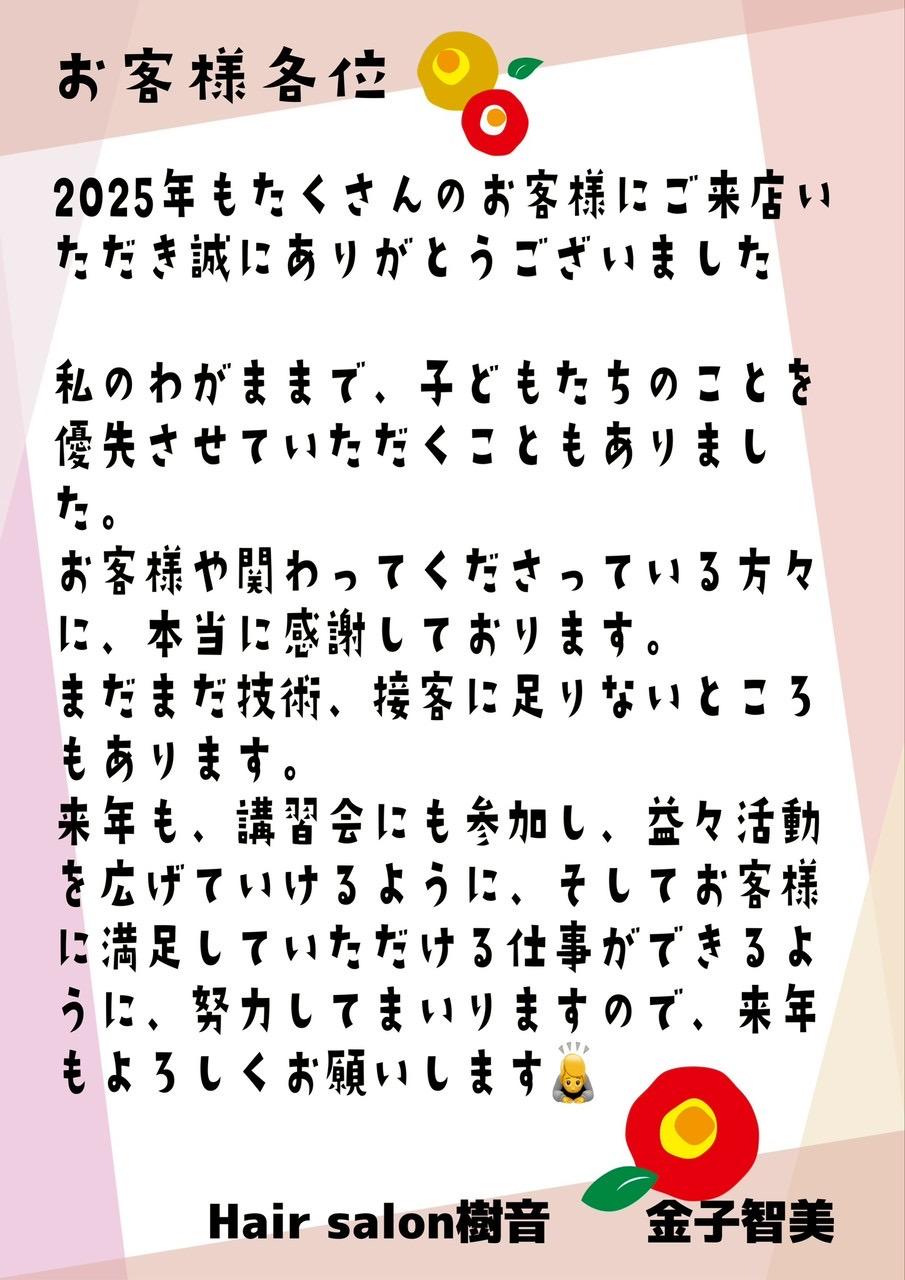 お客様各位
2025年もたくさんのお客様にご来店い
ただき誠にありがとうございました
私のわがままで、子どもたちのことを
優先させていただくこともありまし
た。
お客様や関わってくださっている方々
に、本当に感謝しております。
まだまだ技術、接客に足りないところ
もあります。
来年も、講習会にも参加し、益々活動
を広げていけるように、そしてお客様
に満足していただける仕事ができるよ
うに、努力してまいりますので、来年
もよろしくお願いします🙇
Hair salon樹音 金子智美